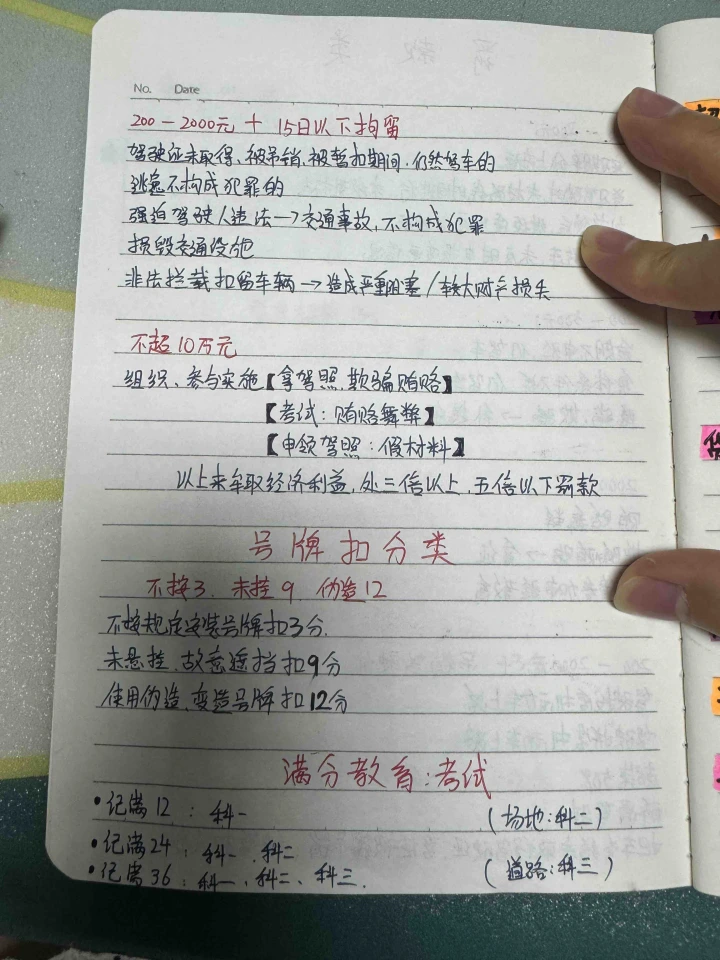 No. Date
200-2000元 + 15日以下拘留
驾驶证未取得、被吊销、被暂扣期间,仍然驾车的
逃逸不构成犯罪的
强迫驾驶人违法→交通事故,不构成犯罪
损毁交通设施
非法拦截扣留车辆→造成严重阻塞/较大财产损失
不超10万元
组织、参与实施【拿驾照,欺骗贿赂】
【考试:贿赂舞弊】
【申领驾照:假材料】
以上来牟取经济利益,处三倍以上,五倍以下罚款
号牌扣分类
不按3. 未挂9. 伪造12
不按规定安装号牌扣3分.
未悬挂、故意遮挡扣9分
使用伪造、变造号牌扣12分
满分教育:考试
•记满12:科一 (场地:科二)
•记满24:科一、科二
•记满36:科一、科二、科三. (道路:科三)